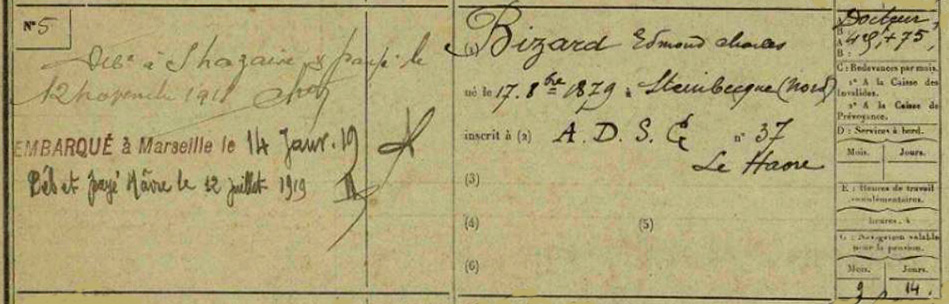 N° 5
Deb<sup>é</sup> à S<sup>t</sup> Nazaire & payé le
12 novembre 1918
EMBARQUÉ à Marseille le 14 Janv. 19
Deb et payé Hâvre le 12 juillet 1919
(1) Bizard Edmond Charles
né le 17. 8<sup>bre</sup> 1879 à Steinbecque (Nord)
inscrit à (2) A. D. S. G n° 37
Le Havre
(3)
(4) (5)
(6)
Docteur,
B :
A :
B :
C : Redevances par mois.
1° A la Caisse des
Invalides.
2° A la Caisse de
Prévoyance.
D : Services à bord.
Mois. Jours.
E : Heures de travail
supplémentaires.
heures. à
G : Navigation valable
pour la pension.
Mois. Jours.
9 14.